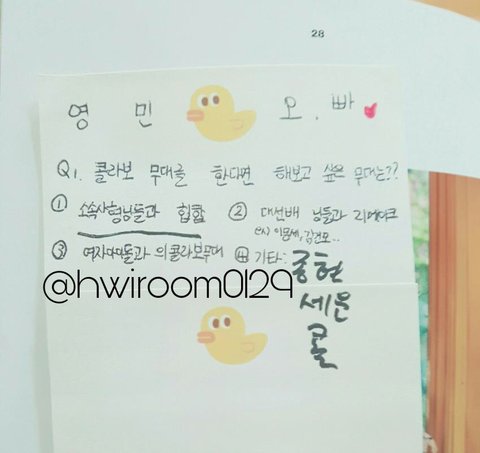 28
영 민 오.빠
Q1. 콜라보 무대를 한다면 해보고 싶은 무대는??
① 소속사형님들과 힙합 ② 대선배 님들과 리메이크
ex) 이문세, 김건모..
③ 여자아이돌과의 콜라보무대 ④ 기타: 종현
세운
콜
@hwiroom0129